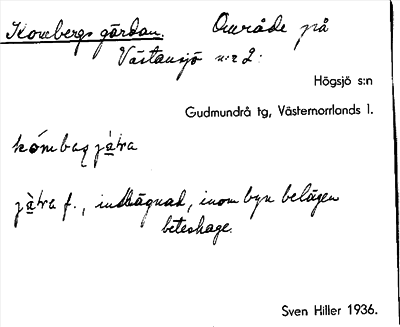 Kornbergs gärdan. Område på
Västansjö nr 2.
Högsjö s:n
Gudmundrå tg, Västernorrlands l.
kómbaq jä̀tra
jä̀tra f., inhägnad, inom byn belägen
beteshage.
Sven Hiller 1936.